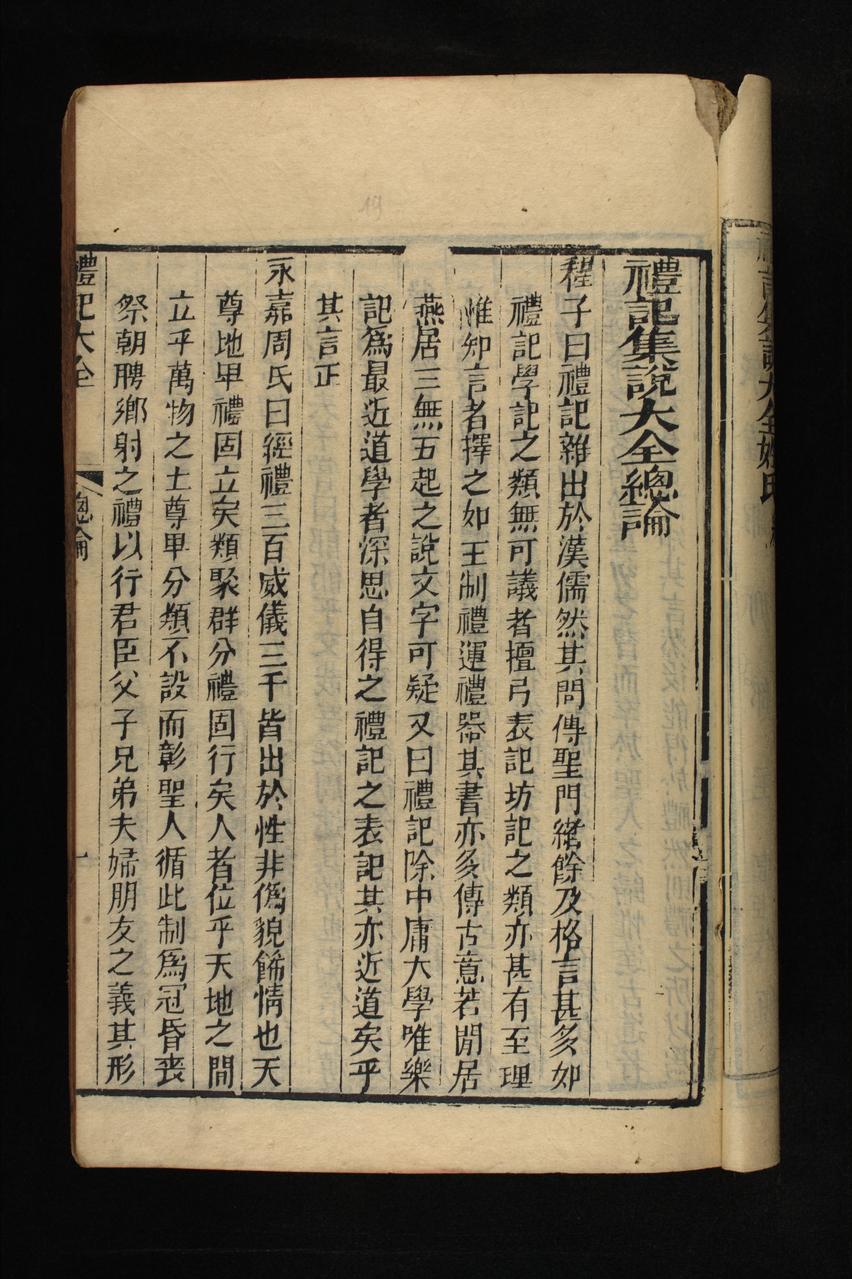 禮記集說大全總論
程子曰禮記雜出於漢儒然其間傳聖門緒餘及格言甚多如
禮記學記之類無可議者擅弓表記坊記之類亦甚有至理
惟知言者擇之如王制禮運禮器其書亦多傳古意若閒居
燕居三無五起之說文字可疑又曰禮記除中庸大學唯樂
記爲最近道學者深思自得之禮記之表記其亦近道矣乎
其言正
永嘉周氏曰經禮三百威儀三千皆出於性非僞貌飾情也天
尊地卑禮固立矣類聚群分禮固行矣人者位乎天地之間
立乎萬物之上尊卑分類不設而彰聖人循此制爲冠昏喪
祭朝聘鄉射之禮以行君臣父子兄弟夫婦朋友之義其形
禮記大全
總論
一